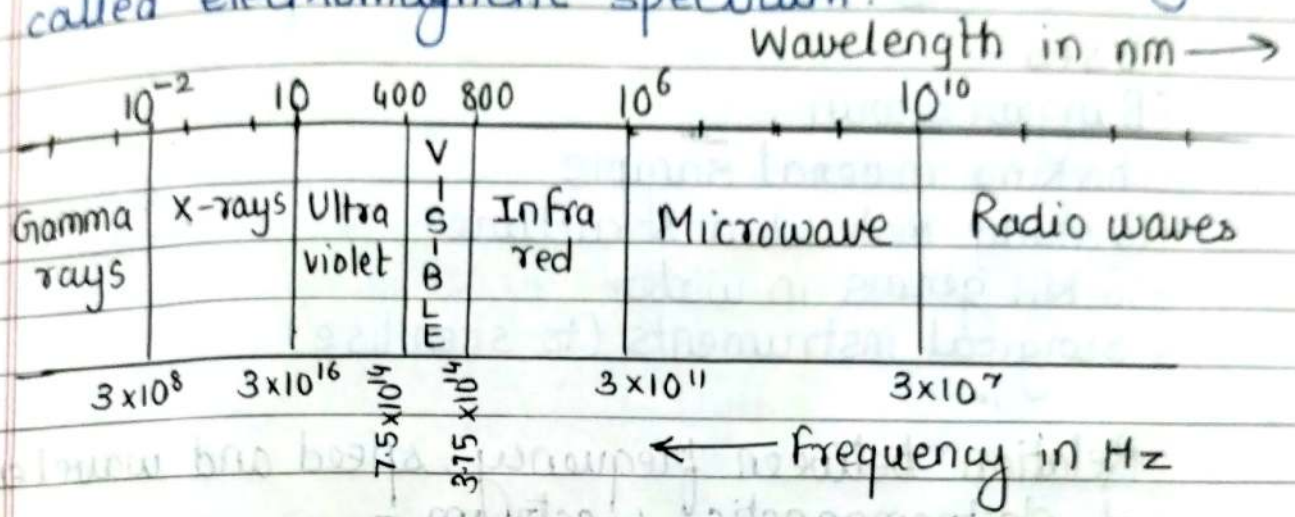 called electromagnetic spectrum.
Wavelength in nm →
10⁻² 10 400 800 10⁶ 10¹⁰
Gamma rays
X-rays
Ultra violet
VISIBLE
Infra red
Microwave
Radio waves
3×10⁸ 3×10¹⁶ 7.5×10¹⁴ 3.75×10¹⁴ 3×10¹¹ 3×10⁷
← Frequency in Hz